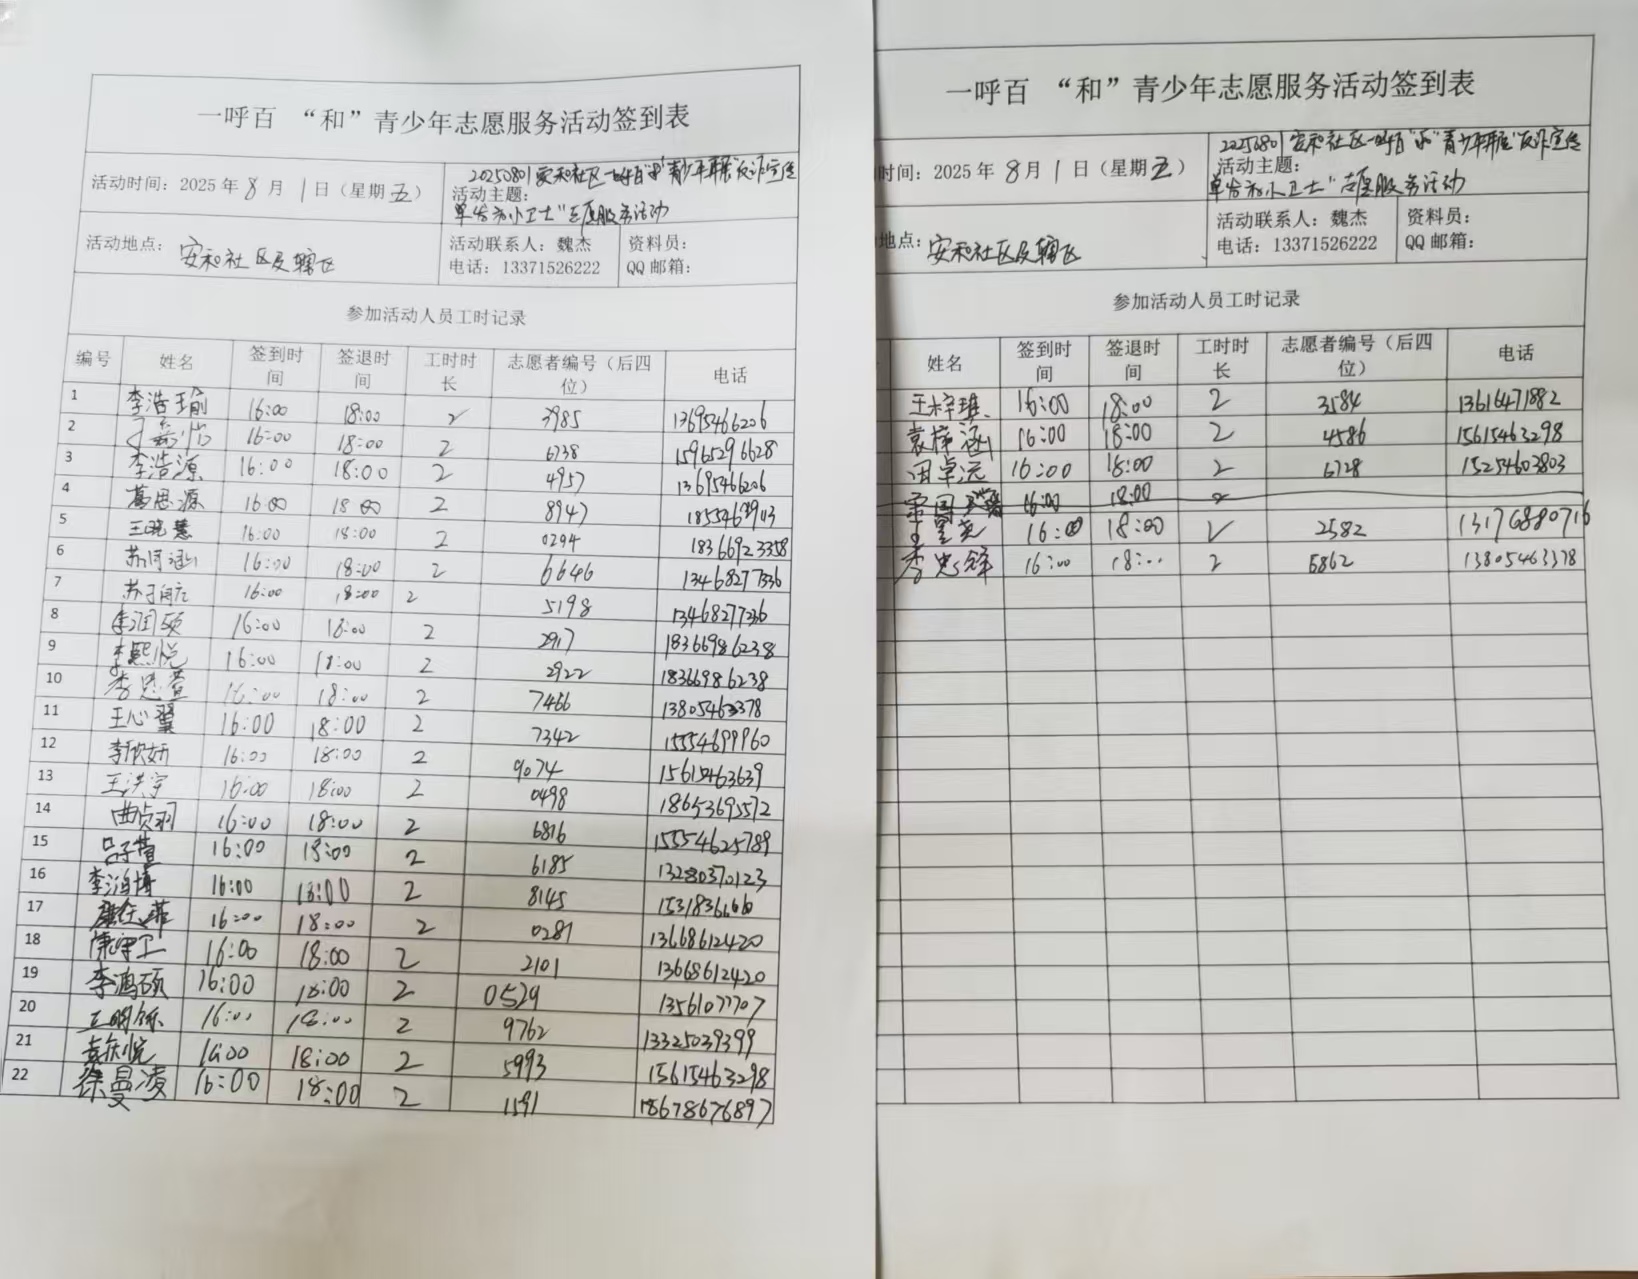 一呼百 “和”青少年志愿服务活动签到表
活动时间：2025年8月1日（星期五）
20250801安和社区一呼百“和”青少年开展“反诈宣传
活动主题：
单 小卫士”志愿服务活动
活动地点：安和社区及辖区
活动联系人：魏杰
电话：13371526222
资料员：
QQ邮箱：
参加活动人员工时记录
编号 姓名 签到时间 签退时间 工时时长 志愿者编号（后四位） 电话
1 李浩瑜 16:00 18:00 2 3985 13695466206
2 16:00 18:00 2 6738 15965296628
3 李浩源 16:00 18:00 2 4957 13695466206
4 葛思源 16:00 18:00 2 8947
5 王晓慧 16:00 18:00 2 0294 18366923358
6 苏 涵 16:00 18:00 2 6646 13468277336
7 苏 16:00 18:00 2 5198
8 李润硕 16:00 18:00 2 2917 18366986238
9 李熙悦 16:00 18:00 2 2922 18366986238
10 李思萱 16:00 18:00 2 7466 13805463378
11 王心翼 16:00 18:00 2 7342 15554699960
12 李欣妍 16:00 18:00 2 9074 15615463639
13 王洪宇 16:00 18:00 2 0498 18653695572
14 曲贞羽 16:00 18:00 2 6816 15554625789
15 吕子萱 16:00 18:00 2 6185 13280370123
16 李泊博 16:00 18:00 2 8145
17 16:00 18:00 2 0281 13668612420
18 陈守工 16:00 18:00 2 2101 13668612420
19 李鸿硕 16:00 18:00 2 0529 13561077707
20 王明 16:00 18:00 2 9762 13325039399
21 袁欣悦 16:00 18:00 2 5993 15615463298
22 徐曼凌 16:00 18:00 2 1591 18678676897
一呼百 “和”青少年志愿服务活动签到表
时间：2025年8月1日（星期五）
20250801安和社区一呼百“和”青少年开展“反诈宣传
活动主题：
单 小卫士”志愿服务活动
地点：安和社区及辖区
活动联系人：魏杰
电话：13371526222
资料员：
QQ邮箱：
参加活动人员工时记录
姓名 签到时间 签退时间 工时时长 志愿者编号（后四位） 电话
王梓琪 16:00 18:00 2 3584 13616471882
袁梓涵 16:00 18:00 2 4586 15615463298
田卓沅 16:00 18:00 2 6728 15254603803
16:00 18:00 2
王昱尧 16:00 18:00 2 2582 13176880716
李忠锋 16:00 18:00 2 6862 13805463378